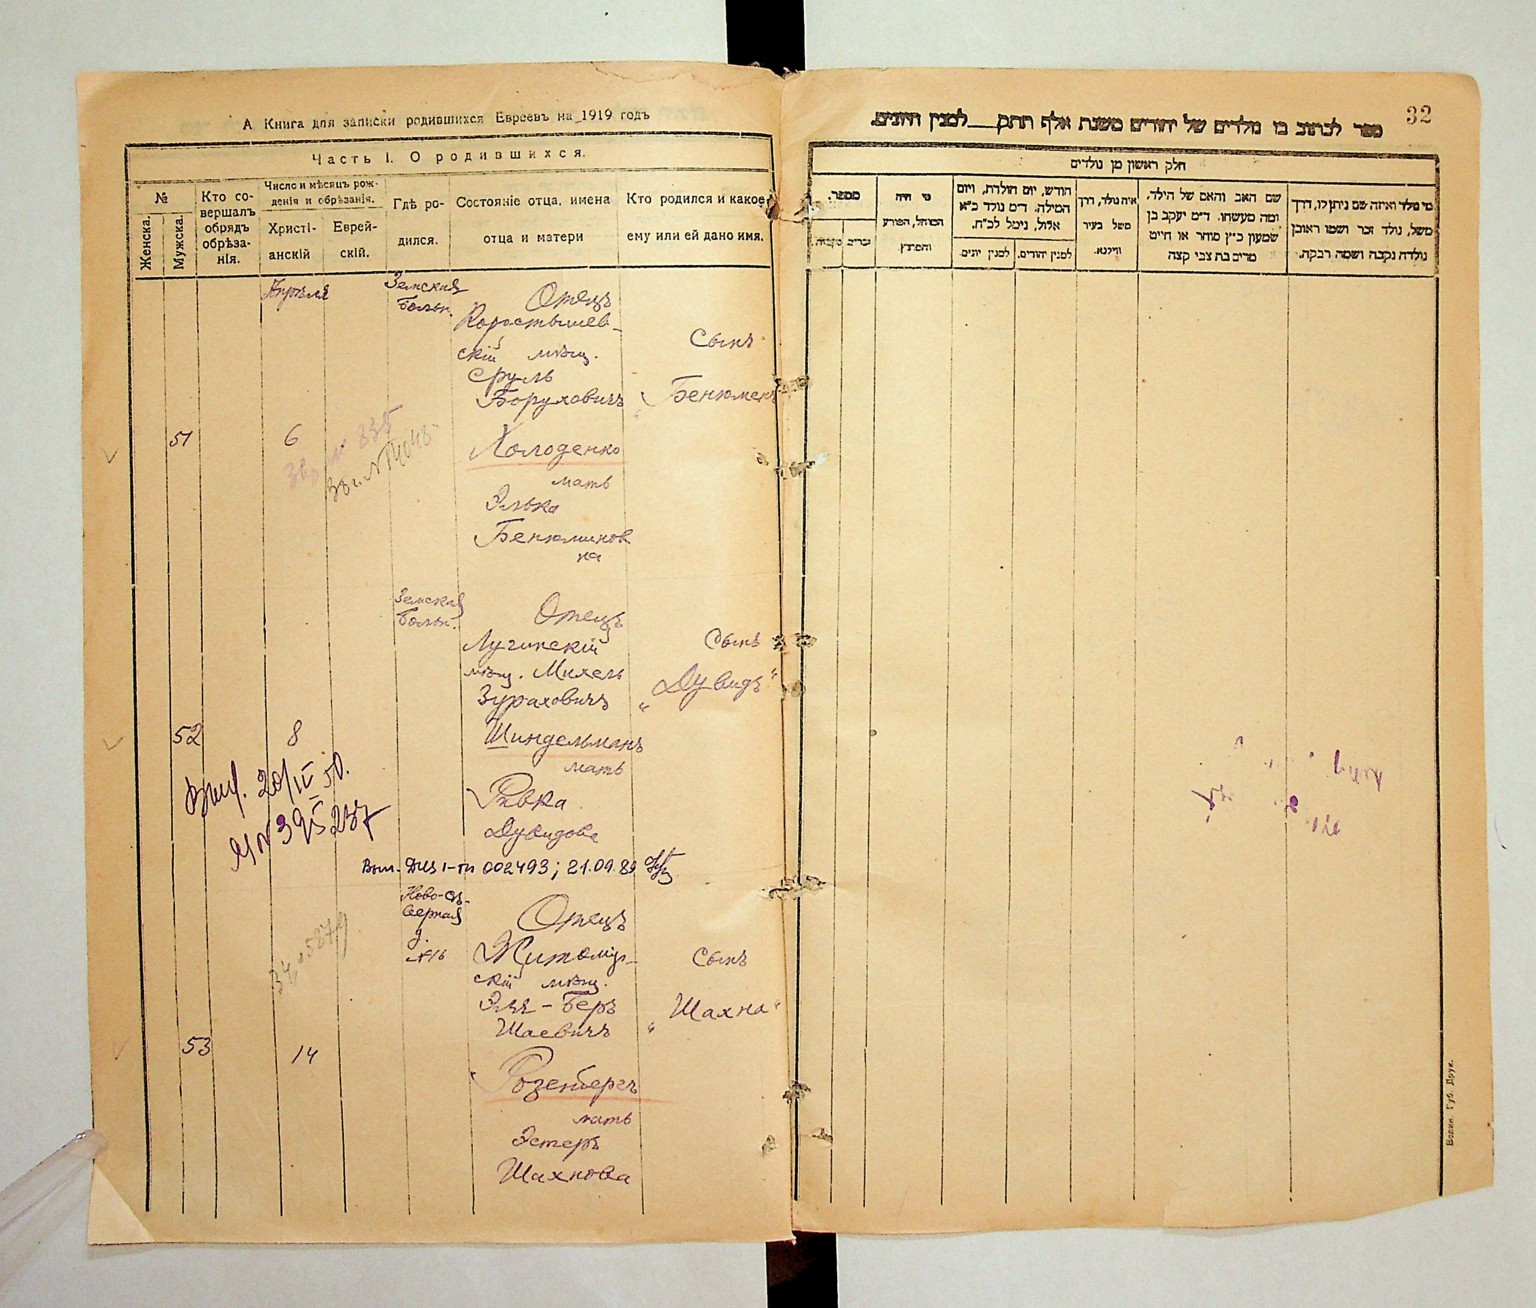 А Книга для записки родившихся Евреевъ на 1919 годъ
Часть I. О родившихся.
№
Женска.
Мужска.
Кто со-
вершалъ
обрядъ
обрѣза-
нія.
Число и мѣсяцъ рож-
денія и обрѣзанія.
Христі-
анскій
Еврей-
скій.
Гдѣ ро-
дился.
Состояніе отца, имена
отца и матери
Кто родился и какое
ему или ей дано имя.
Апрѣля
Земская
Больн.
Отецъ
Коростышев-
скій мѣщ.
Сруль
Борухович
Холоденко
мать
Элька
Бенюминов
на
Сынъ
„Бенюмен
51
6
№ 335
Земская
Больн.
Отецъ
Лугинскій
мѣщ. Михель
Зураховичъ
Шиндельманъ
мать
Ривка
Дувидова
Сынъ
„Дувидъ“
52
8
20/IV 50.
№ 395237
002493; 21.09.89
Ново-Сѣ-
верная
д.
№16
Отецъ
Житомір-
скій мѣщ.
Эля-Беръ
Шаевичъ
Розенбергъ
мать
Эстеръ
Шахнова
Сынъ
„Шахна“
53
14
32
ספר לכתוב בו נולדים של יהודים משנת אלף תתק__ למנין היונים.
חלק ראשון מן נולדים
מספר.
מי היה
המוהל, הפורע
והמוצץ
חודש, יום הולדת, ויום
המילה. ד״מ נולד כ״א
אלול, נימול לכ״ח.
למנין יונים.
למנין יהודים.
איה נולד, דרך
משל בעיר
ווילנא.
שם האב והאם של הילד,
ומה מעשהו. ד״מ יעקב בן
שמעון כ״ץ סוחר או חייט
מרים בת צבי קצה
מי נולד ואיזה שם ניתן לו, דרך
משל, נולד זכר ושמו ראובן
נולדה נקבה ושמה רבקה.
Волын. Губ. Друк.